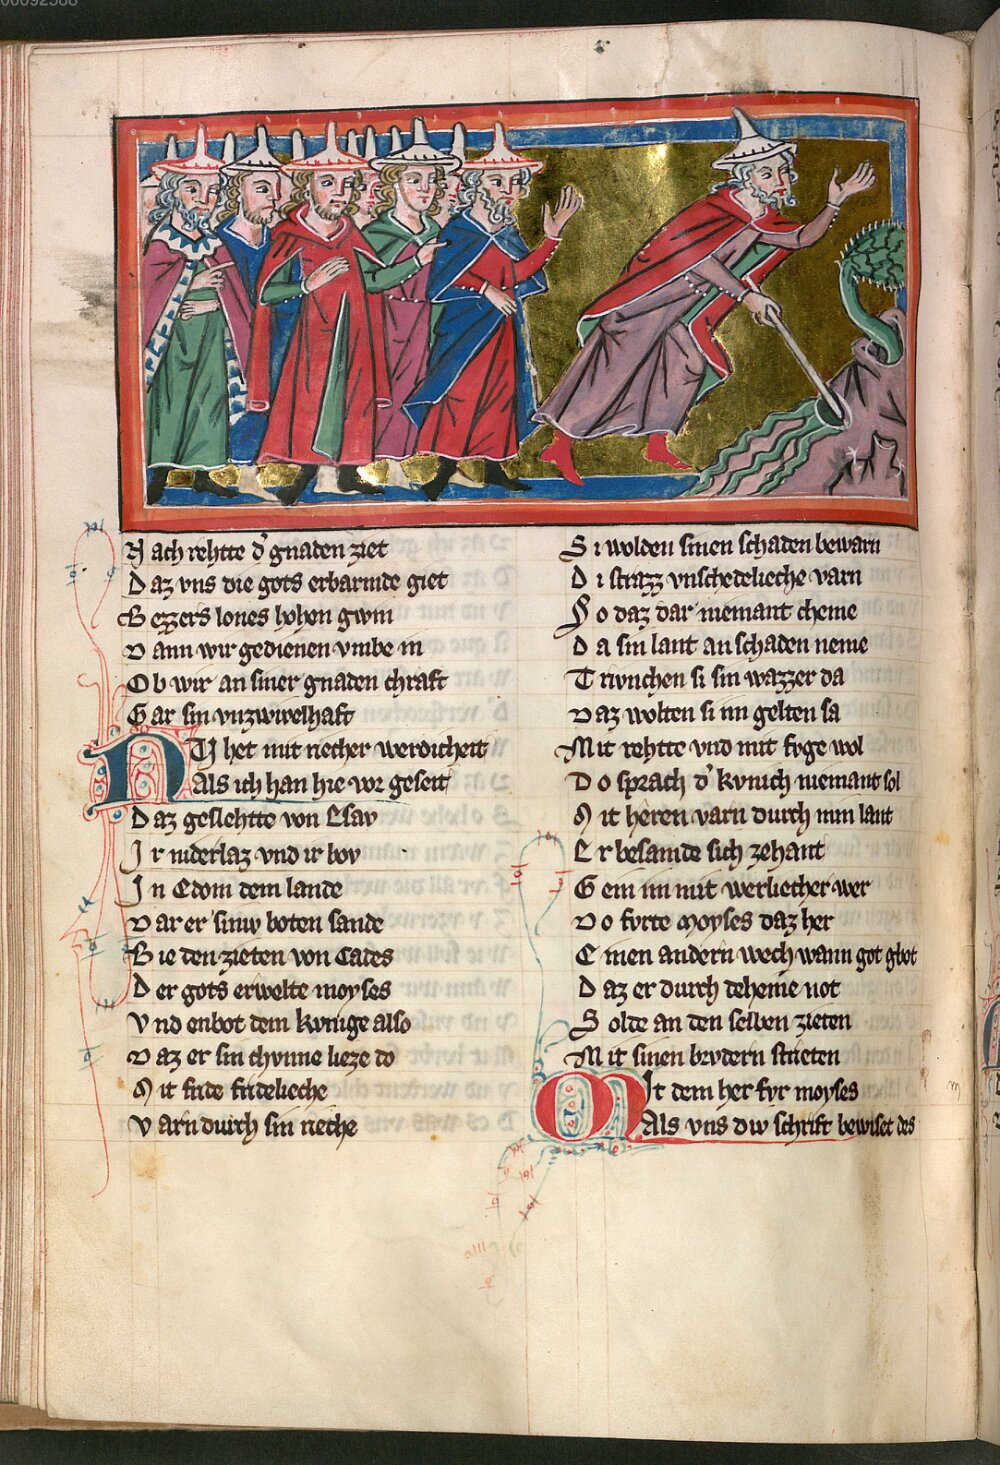 00092588
Nach rehtte d' gnaden ziet
Daz vns die gots erbarmde giet
Bezzers lones hohen gwin
Dann wir gedienen vmbe in
Ob wir an siner gnaden chraft
Gar sin vnzwivelhaft
NV het mit richer werdicheit
Als ich han hie vor geseit
Daz geslehtte von Esav
Ir niderlaz vnd ir bov
In Edom dem lande
Dar er sinw boten sande
Bie den zieten von Cades
Der gots erwelte moyses
Vnd enbot dem kvnige also
Daz er sin chvnne lieze do
Mit fride fridelieche
Varn durch sin rieche
Si wolden sinen schaden bewarn
Di strazz vnschedelieche varn
So daz dar niemant cheme
Da sin lant an schaden neme
Trivnchen si sin wazzer da
Daz wolten si im gelten sa
Mit rehtte vnd mit fvge wol
Do sprach d' kvnich niemant sol
Mit heren varn durch min lant
Er besamde sich zehant
Gein im mit werliecher wer
Do fvrte Moyses daz her
Einen andern wech wann got gbot
Daz er durch deheine not
Solde an den selben zieten
Mit sinen brvdern strieten
MIt dem her fvr moyses
Als vns diw schrift bewiset des